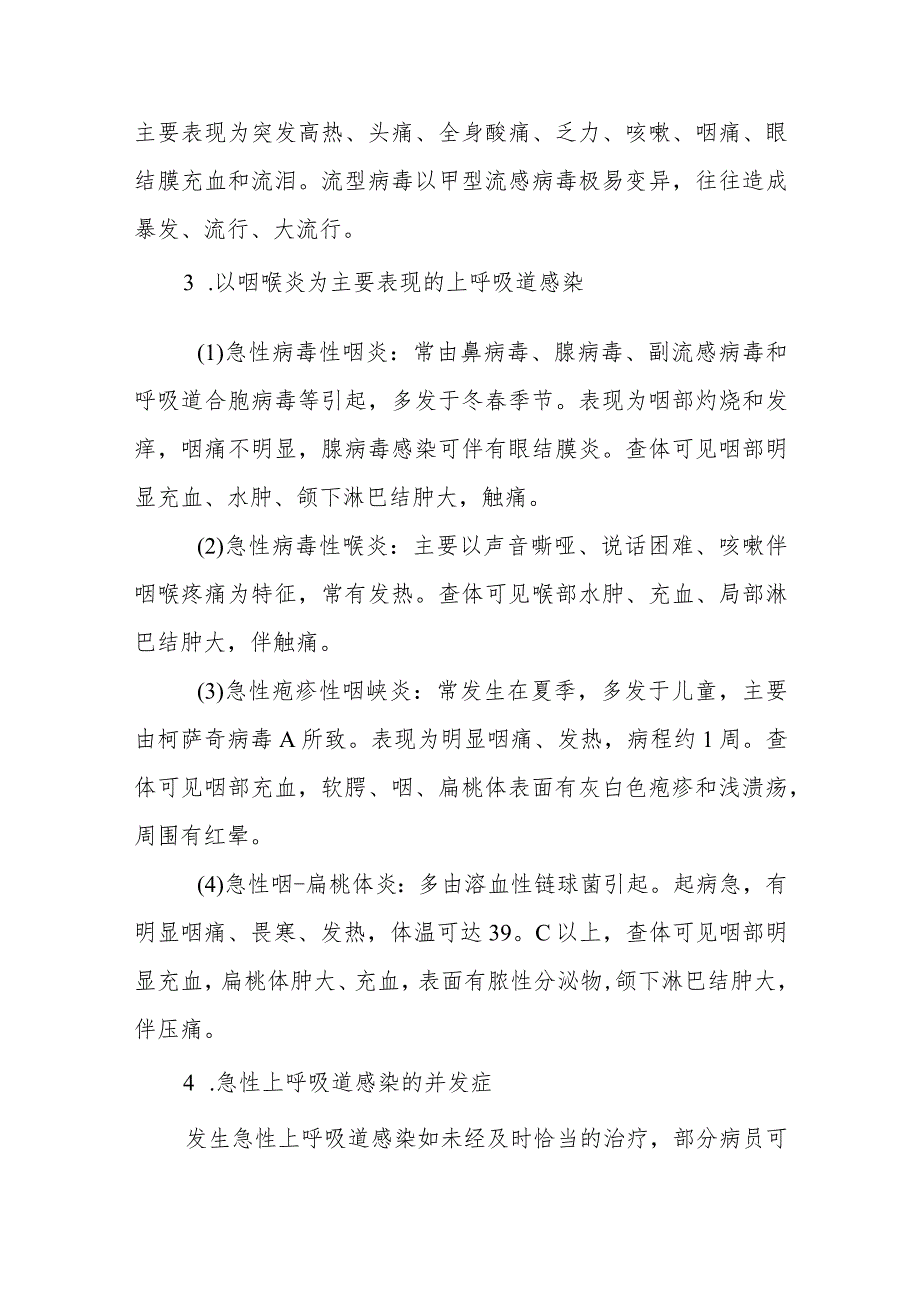 主要表现为突发高热、头痛、全身酸痛、乏力、咳嗽、咽痛、眼
结膜充血和流泪。流型病毒以甲型流感病毒极易变异，往往造成
暴发、流行、大流行。
3 .以咽喉炎为主要表现的上呼吸道感染
(1)急性病毒性咽炎：常由鼻病毒、腺病毒、副流感病毒和
呼吸道合胞病毒等引起，多发于冬春季节。表现为咽部灼烧和发
痒，咽痛不明显，腺病毒感染可伴有眼结膜炎。查体可见咽部明
显充血、水肿、颌下淋巴结肿大，触痛。
(2)急性病毒性喉炎：主要以声音嘶哑、说话困难、咳嗽伴
咽喉疼痛为特征，常有发热。查体可见喉部水肿、充血、局部淋
巴结肿大，伴触痛。
(3)急性疱疹性咽峡炎：常发生在夏季，多发于儿童，主要
由柯萨奇病毒A所致。表现为明显咽痛、发热，病程约1周。查
体可见咽部充血，软腭、咽、扁桃体表面有灰白色疱疹和浅溃疡，
周围有红晕。
(4)急性咽-扁桃体炎：多由溶血性链球菌引起。起病急，有
明显咽痛、畏寒、发热，体温可达39。C以上，查体可见咽部明
显充血,扁桃体肿大、充血,表面有脓性分泌物,颌下淋巴结肿大，
伴压痛。
4 .急性上呼吸道感染的并发症
发生急性上呼吸道感染如未经及时恰当的治疗，部分病员可